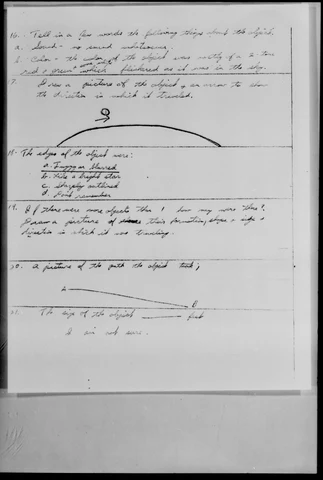 16. Tell in a few words the following things about the object.
a. Sound - no sound whatsoever.
b. Color - the color of the object was mostly of a two tone
red & green which flickered as it was in the sky.
Draw a picture of the object & an arrow to show
the direction in which it traveled.
18. The edges of the object were:
a. Fuzzy or blurred
b. Like a bright star
c. Sharply outlined
d. Don't remember
19. If there were more objects than 1 how many were there?
Draw a picture of their formation, shape & sign &
direction in which it was traveling.
20. A picture of the path the object took;
A
B
The size of the object feet
I am not sure.